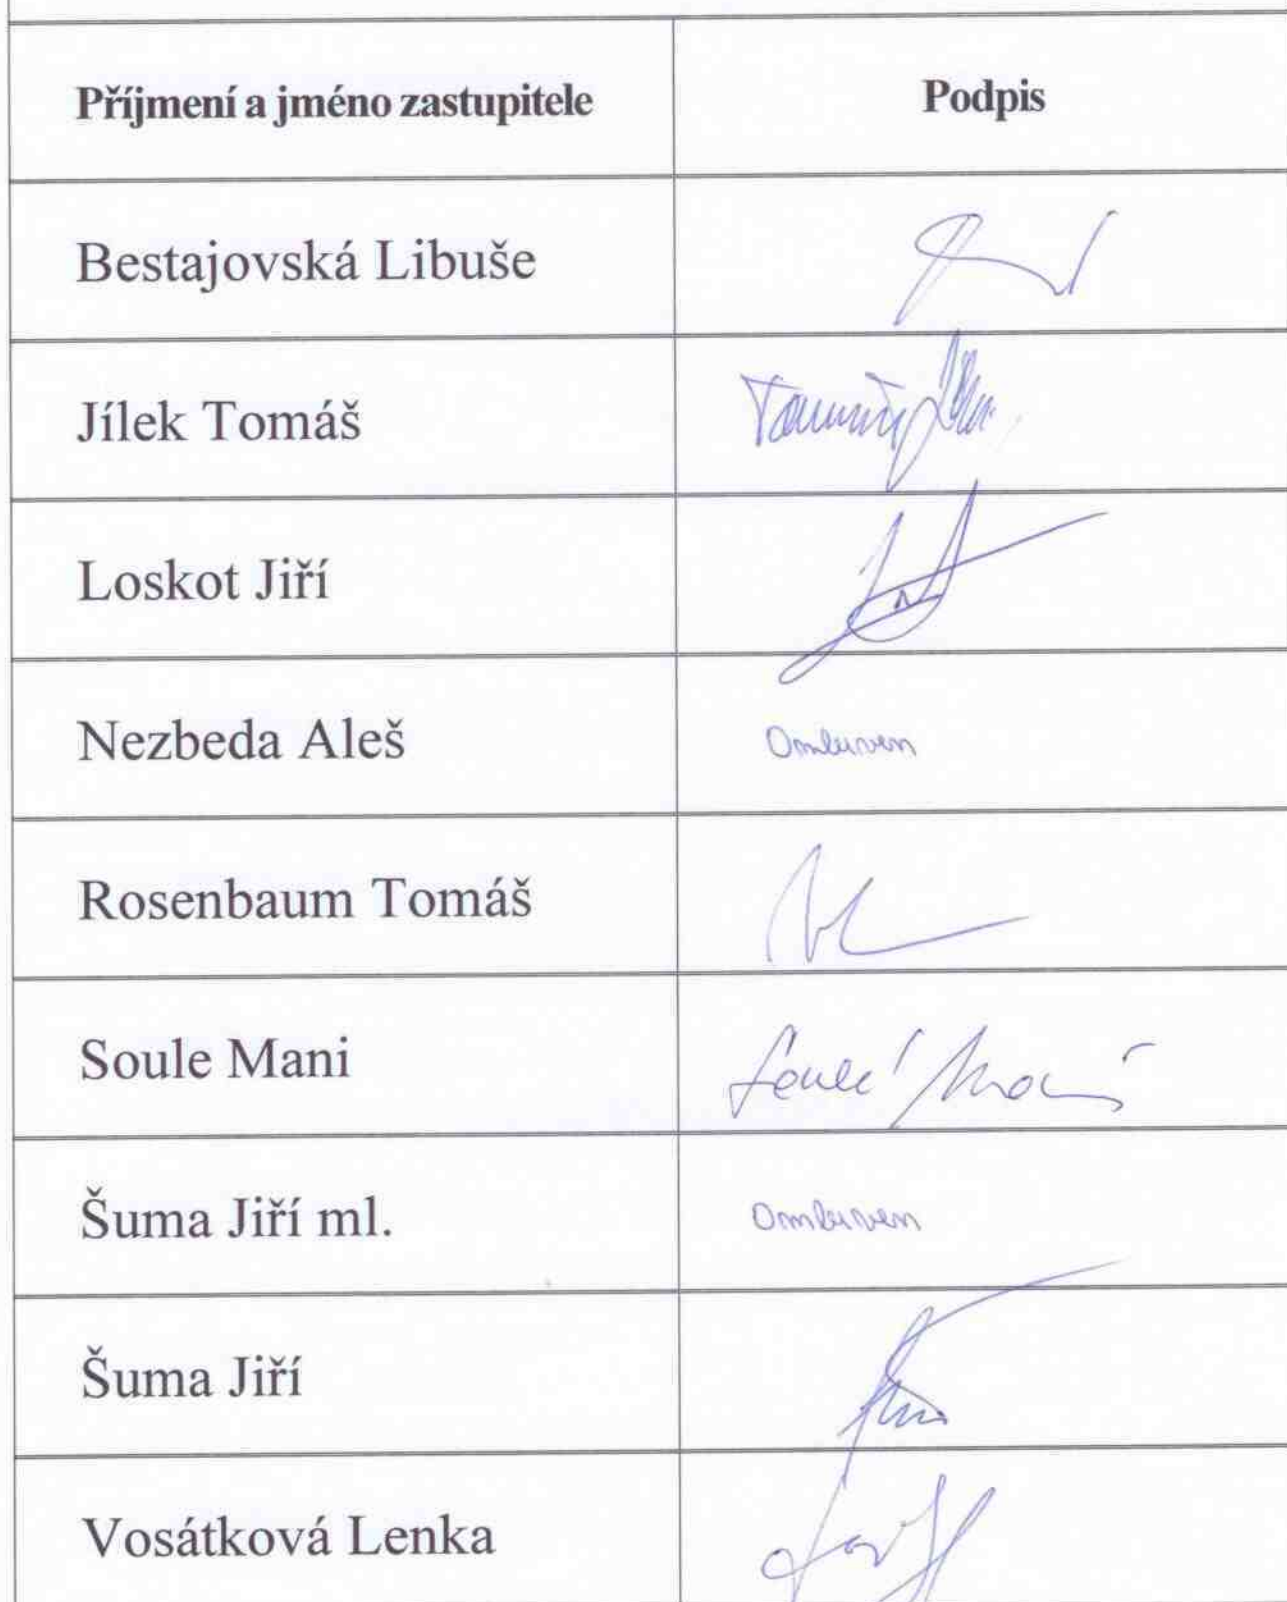 Příjmení a jméno zastupitele Podpis
Bestajovská Libuše
Jílek Tomáš
Loskot Jiří
Nezbeda Aleš Omluven
Rosenbaum Tomáš
Soule Mani
Šuma Jiří ml. Omluven
Šuma Jiří
Vosátková Lenka